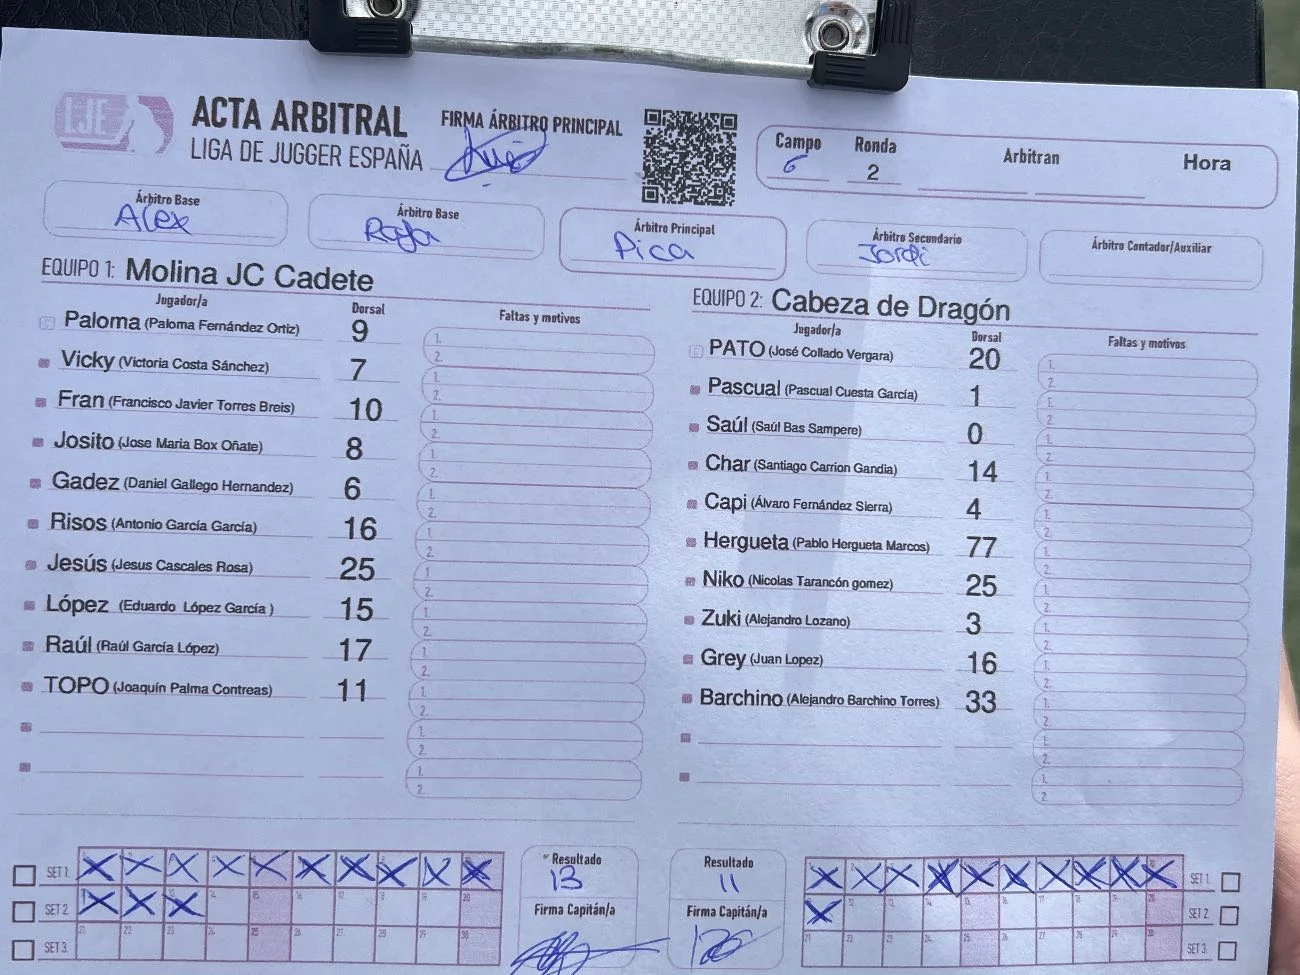 LJE
ACTA ARBITRAL
LIGA DE JUGGER ESPAÑA
FIRMA ÁRBITRO PRINCIPAL
Campo Ronda Arbitran Hora
6 2
Árbitro Base Árbitro Base Árbitro Principal Árbitro Secundario Árbitro Contador/Auxiliar
Alex Rafa Pica Jordi
EQUIPO 1: Molina JC Cadete
Jugador/a Dorsal Faltas y motivos
Paloma (Paloma Fernández Ortiz) 9
Vicky (Victoria Costa Sánchez) 7
Fran (Francisco Javier Torres Breis) 10
Josito (Jose Maria Box Oñate) 8
Gadez (Daniel Gallego Hernandez) 6
Risos (Antonio García García) 16
Jesús (Jesus Cascales Rosa) 25
López (Eduardo López García ) 15
Raúl (Raúl García López) 17
TOPO (Joaquín Palma Contreas) 11
EQUIPO 2: Cabeza de Dragón
Jugador/a Dorsal Faltas y motivos
PATO (José Collado Vergara) 20
Pascual (Pascual Cuesta García) 1
Saúl (Saúl Bas Sampere) 0
Char (Santiago Carrion Gandia) 14
Capi (Álvaro Fernández Sierra) 4
Hergueta (Pablo Hergueta Marcos) 77
Niko (Nicolas Tarancón gomez) 25
Zuki (Alejandro Lozano) 3
Grey (Juan Lopez) 16
Barchino (Alejandro Barchino Torres) 33
SET 1.
SET 2.
SET 3.
Resultado
13
Firma Capitán/a
Resultado
11
Firma Capitán/a
SET 1
SET 2
SET 3